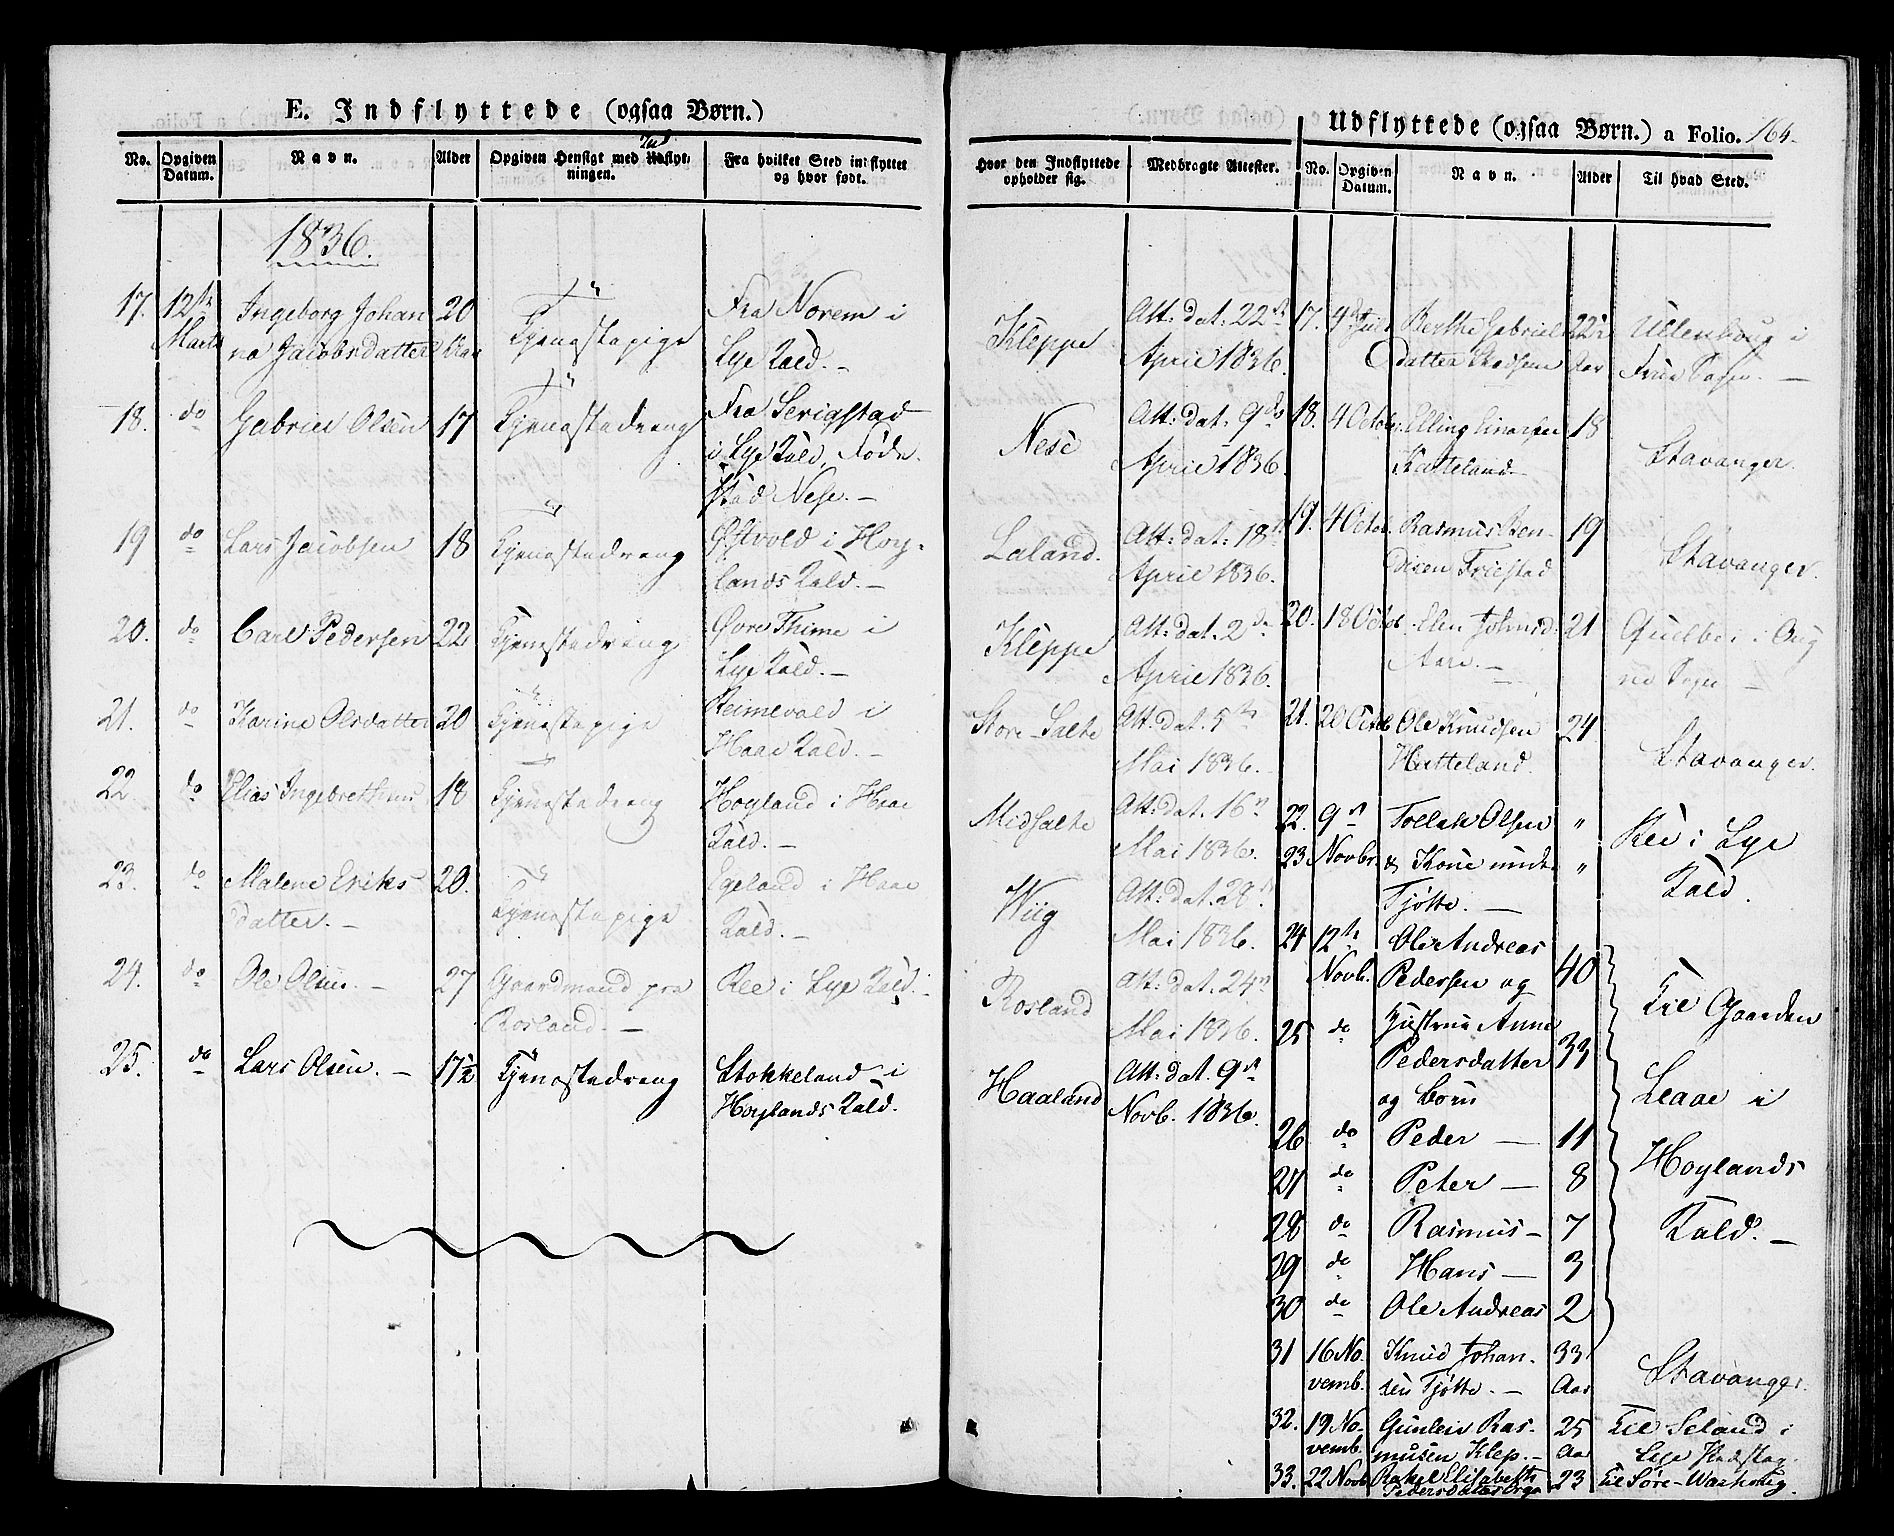 E. Indflyttede (ogsaa Børn.)
No. Opgiven Datum. Navn. Alder Opgiven Hensigt med Indflytningen. Fra hvilket Sted indflyttet og hvor født.
1836.
17. 12te Marts Ingeborg Johanna Jacobsdatter 20 Aar Tjenestepige Fra Norem i Lye Kald. –
18. do Gabriel Olsen 17 Tjenestedreng Fra Serigstad i Lye Kald, Fødestad Nese. –
19 do Lars Jacobsen 18 Tjenestedreng Østvold i Hoylands Kald. –
20. do Carl Pedersen 22 Tjenestedreng Øvre Thime i Lye Kald. –
21. do Karine Olsdatter 20 Tjenestepige Reimevold i Haae Kald. –
22 do Elias Ingebrethsen 18 Tjenestedreng Hoyland i Haae Kald. –
23. do Malene Eriksdatter. – 20. Tjenestepige Egeland i Haae Kald. –
24. do Ole Olsen. – 27 Gaardmand paa Rosland. – Ree i Lye Kald. –
25. do Lars Olsen. – 17½ Tjenestedreng Stokkeland i Hoylands Kald.
Hvor den Indflyttede opholder sig. Medbragte Attester.
Kleppe Att: dat: 22de April 1836.
Nese Att: dat: 9de April 1836.
Laland. Att: dat: 18de April 1836.
Kleppe Att: dat. 2de April 1836.
Store-Salte Att: dat. 5te Mai 1836.
Midsalte Att: dat. 16de Mai 1836.
Wiig Att: dat. 28de Mai 1836.
Rosland Att: dat. 24de Mai 1836.
Haaland Att: dat. 9de Novb. 1836.
Udflyttede (ogsaa Børn.) a Folio. 164.
No. Opgiven Datum. Navn. Alder Til hvad Sted.
17. 4de Juli Berthe Gabrielsdatter 22 Aar i Frue Sogn. –
18. 4 Octob. Elling Einarsen 18 Stavanger.
19. 4 Octob. Rasmus Bendixen Friestad 19 Stavanger.
20. 18 Octob. Johnsd. Aare. – 21 i Ogne Sogn –
21. 20 Octob Ole Knudsen Hatteland. 24 Stavanger.
22. 9de Tollak Olsen "
23 Novbr. & Kone Tjøtte. – " Ree i Lye Kald.
24 12te Novb. Ole Andreas Pedersen og 40
25 do Hustrue Anne Pedersdatter og Børn 33
26 do Peder – 11
27 do Peter – 8
28 do Rasmus – 7
29 do Hans – 3
30 do Ole Andreas 2
Til Gaarden Leaae i Hoylands Kald. –
31 16 November. Knud Johansen Tjøtte. – 33 Aar Stavanger.
32. 19 November. Gunlein Rasmusen Klep. – 25 Aar Til Seland i Lye
33. 22 Novb Rakel Elisabeth Pedersdatter 23 til Søre-Warhoug.